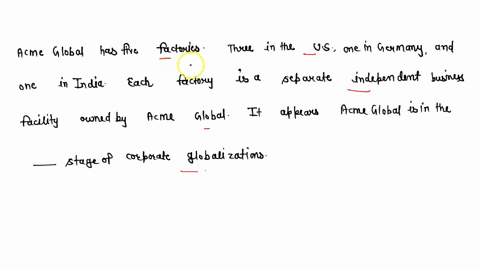 Acme Global has five factories. Three in the U.S., one in Germany, and
one in India. Each factory is a separate independent business
facility owned by Acme Global. It appears Acme Global is in the
____ stage of corporate globalizations.